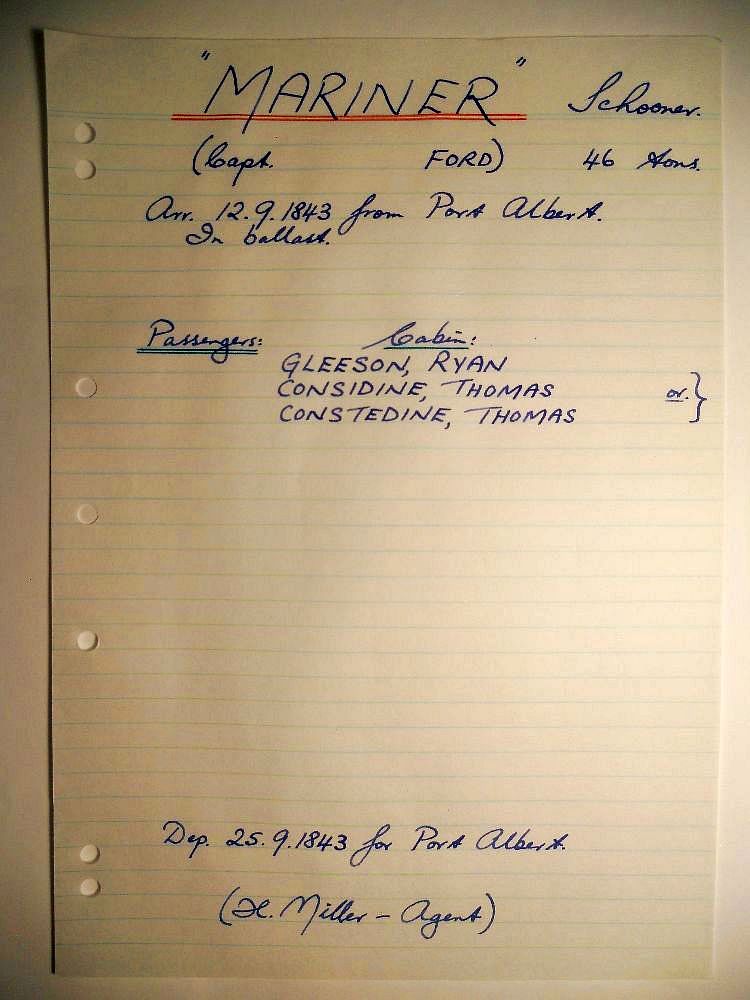 "MARINER" Schooner.
(Capt. FORD) 46 tons.
Arr. 12.9.1843 from Port Albert.
In ballast.
Passengers: Cabin:
GLEESON, RYAN
CONSIDINE, THOMAS or. }
CONSTEDINE, THOMAS
Dep. 25.9.1843 for Port Albert.
(H. Miller - Agent)